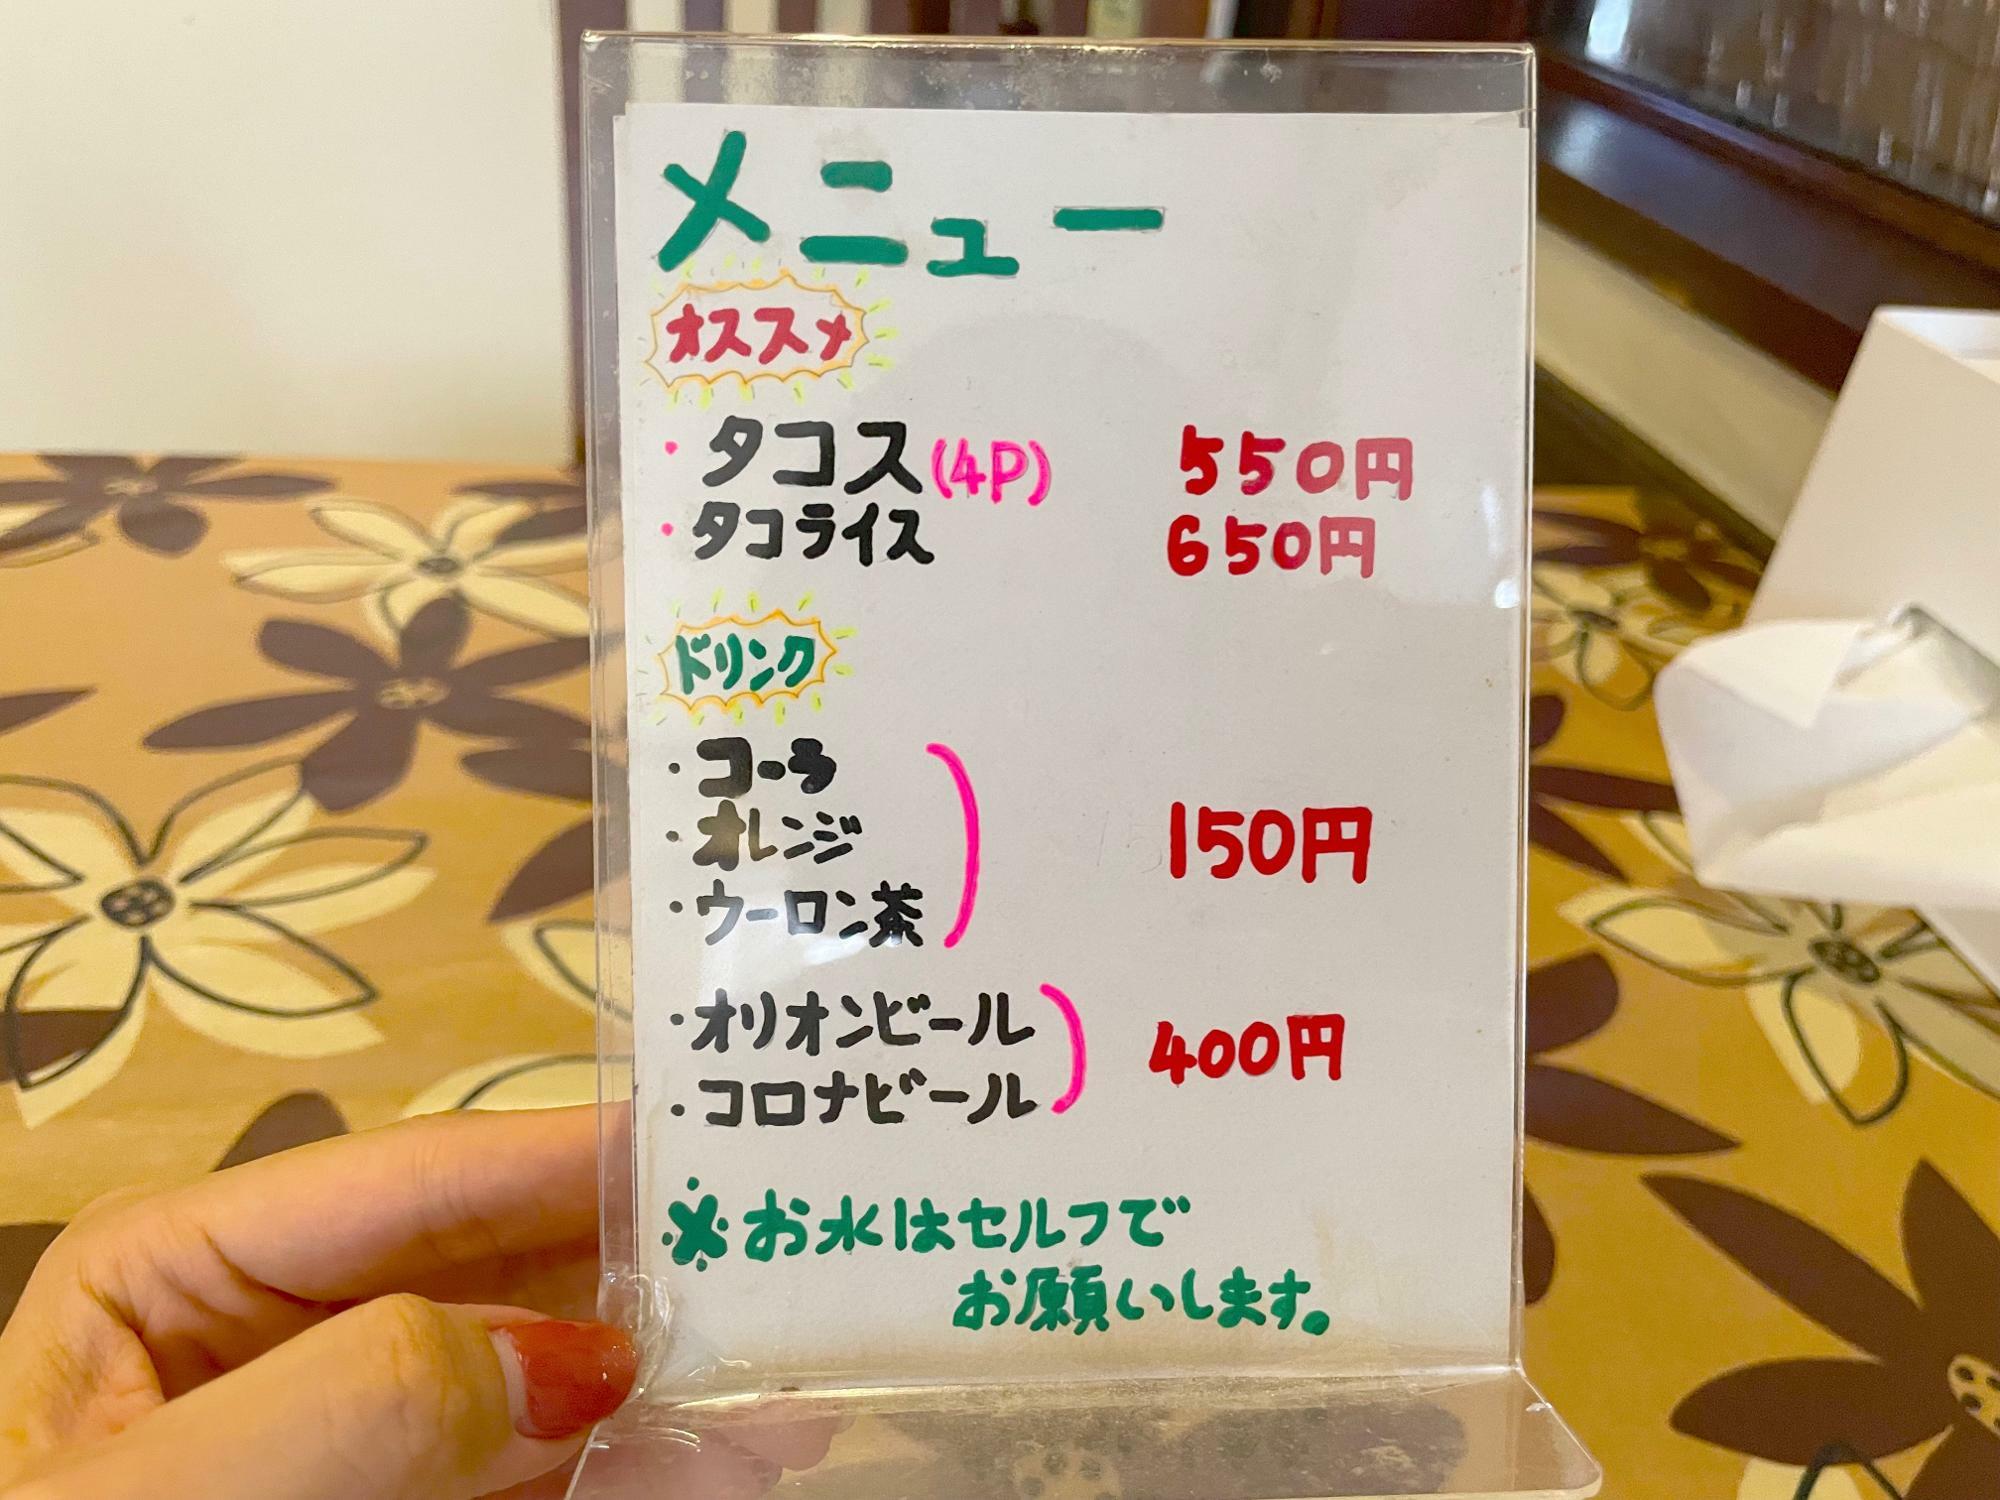 メニュー
オススメ
・タコス(4P) 550円
・タコライス 650円
ドリンク
・コーラ
・オレンジ
・ウーロン茶
150円
・オリオンビール
・コロナビール
400円
※お水はセルフで
お願いします。